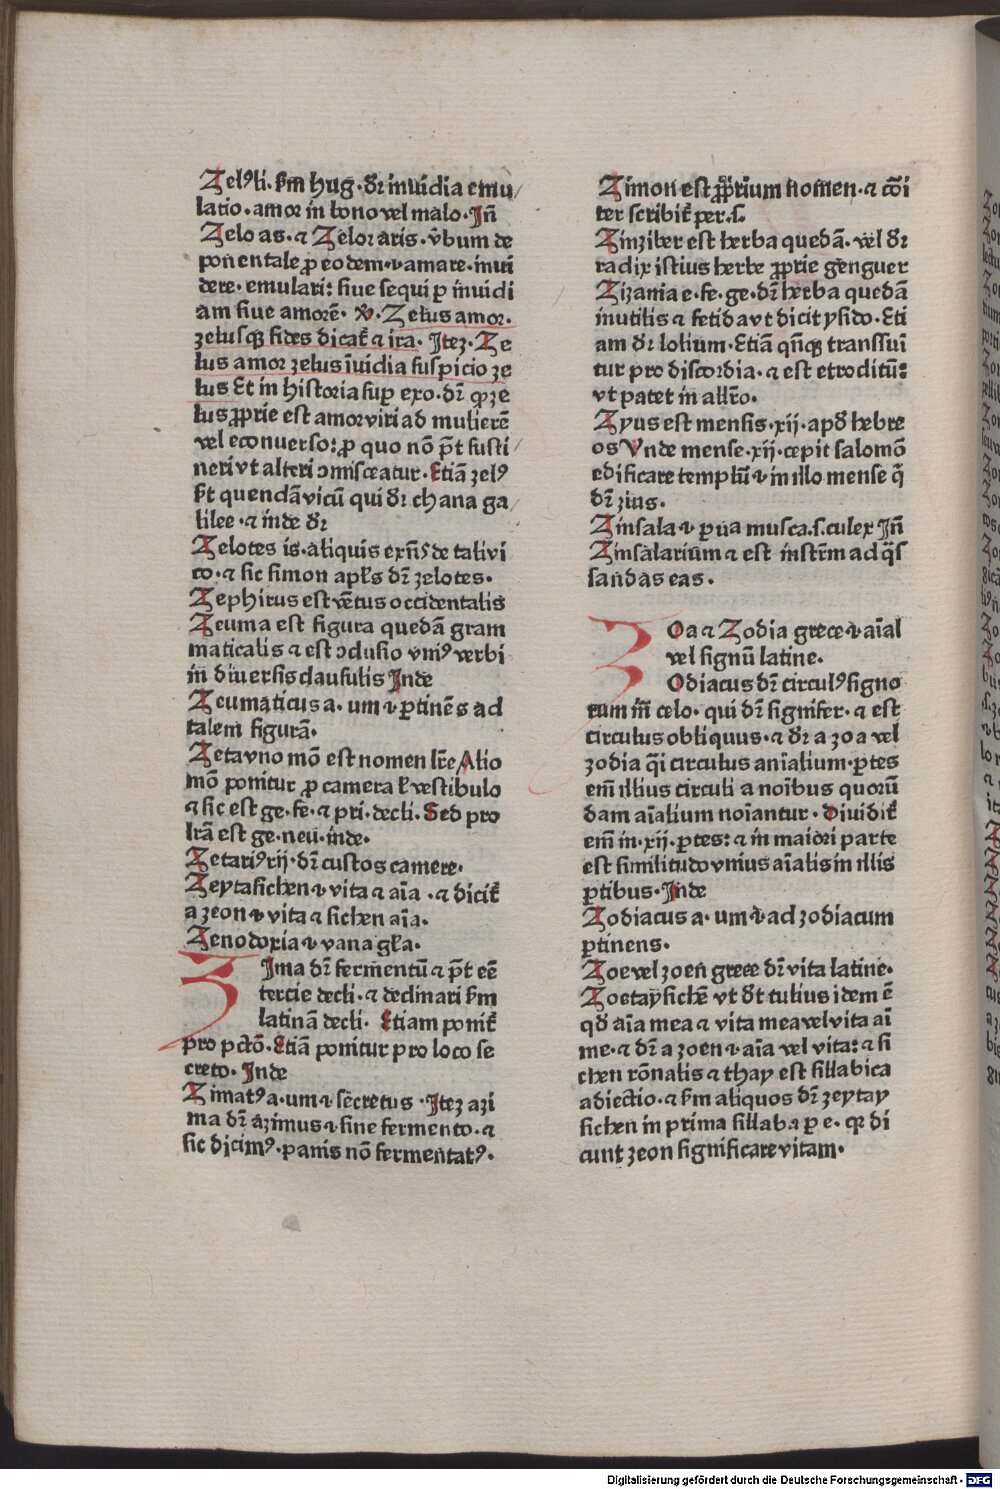 Zelꝰli. ẜm hug. dr̄ inuidia emu/
latio. amor in bono vel malo. Jn̄
Zelo as. ⁊ Zelor aris. v̄bum de
ponentale ꝓ eodem .i. amare. inui
dere. emulari: siue sequi ꝑ inuidi
am siue amorē. Zelus amor.
zelusqꝫ fides dicat᷑ ⁊ ira. Jteꝫ. Ze
lus amor zelus īuidia suspicio ze
lus Et in historia suꝑ exo. dr̄ ꝙ ze
lus ꝓprie est amor viri ad mulierē
vel econuerso: ꝓ quo nō p̄t susti/
neri vt alteri ↄmisceatur. Etiā zelꝰ
quendā vicū qui dr̄ chana ga/
lilee. ⁊ inde dr̄
Zelotes is. aliquis exn̄s de tali vi
co. ⁊ sic simon apl̄s dr̄ zelotes.
Zephirus est vētus occidentalis
Zeuma est figura quedā gram
maticalis ⁊ est ↄclusio vniꝰ verbi
in diuersis clausulis Jnde
Zeumaticus a. um .i. ꝑtinēs ad
talem figurā.
Zeta vno mō est nomen lr̄e Alio
mō ponitur ꝓ camera ł vestibulo
⁊ sic est ge. fe. ⁊ pri. decli. Sed pro
lr̄a est ge. neu. inde.
Zetariꝰ rij. dr̄ custos camere.
Zeyta sichen .i. vita ⁊ aīa. ⁊ dicit᷑
a zeon .i. vita ⁊ sichen aīa.
Zenodoxia .i. vana gl̄a.
ZJma dr̄ fermentū ⁊ p̄t eē
tercie decli. ⁊ declinari ẜm
latinā decli. Etiam ponit᷑
pro pctō. Etiā ponitur pro loco se
creto. Jnde
Zimatꝰ a. um .i. sēcretus. Jteꝫ azi
ma dr̄ azimus .i. sine fermento. ⁊
sic dicimꝰ. panis nō fermentatꝰ.
Zimon est ꝓprium nomen. ⁊ cōi
ter scribit᷑ per .s.
Zinziber est herba quedā. vel dr̄
radix istius herbe ꝓprie gēnguer
Zizania e. fe. ge. dr̄ herba quedā
inutilis ⁊ fetida vt dicit ysido. Eti
am dr̄ lolium. Etiā qn̄qꝫ transsui
tur pro discordia. ⁊ est etroclitū:
vt patet in allr̄o.
Zyus est mensis .xij. apd̄ hebre
os Vnde mense .xij. cepit salomō
edificare templū .i. in illo mense q̄
dr̄ zius.
Zinsala .i. ꝑua musca .s. culex Jn̄
Zinsalarium ⁊ est instr̄m ad q̄s
sandas eas.
ZOa ⁊ Zodia grece .i. aīal
vel signū latine.
Odiacus dr̄ circulꝰ signo
rum in celo. qui dr̄ signifer. ⁊ est
circulus obliquus. ⁊ dr̄ a zoa vel
zodia q̄i circulus animalium. ꝑtes
em̄ illius circuli a noībus quorū
dam aīalium noīantur. Diuidit᷑
em̄ in .xij. ꝑtes: ⁊ in maiori parte
est similitudo vnius aīalis in illis
ꝑtibus. Jnde
Zodiacus a. um .i. ad zodiacum
ꝑtinens.
Zoe vel zoen grece dr̄ vita latine.
Zoetaysichē vt dr̄t tulius idem ē
qd̄ aīa mea ⁊ vita mea vel vita aī
me. ⁊ dr̄ a zoen .i. aīa vel vita: ⁊ si
chen rōnalis ⁊ thay est sillabica
adiectio. ⁊ ẜm aliquos dr̄ zeytay
sichen in prima sillaba ꝑ e. qꝛ di
cunt zeon significare vitam.
Digitalisierung gefördert durch die Deutsche Forschungsgemeinschaft - DFG